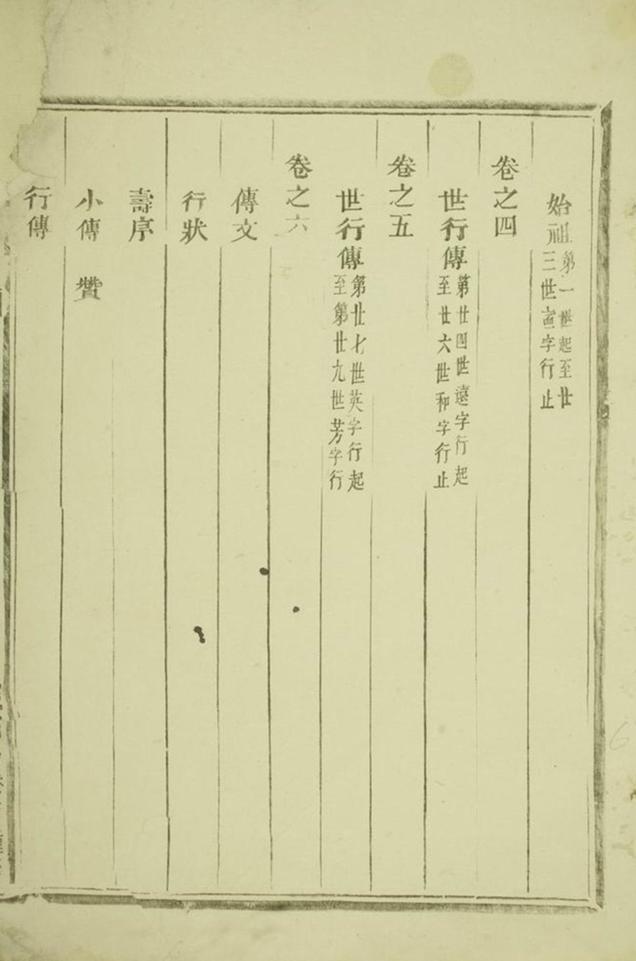 始祖第一世起至廿三世宣字行止
卷之四
世行傳第廿四世遠字行起至廿六世和字行止
卷之五
世行傳第廿七世英字行起至第廿九世芳字行
卷之六
傳文
行狀
壽序
小傳 贊
行傳